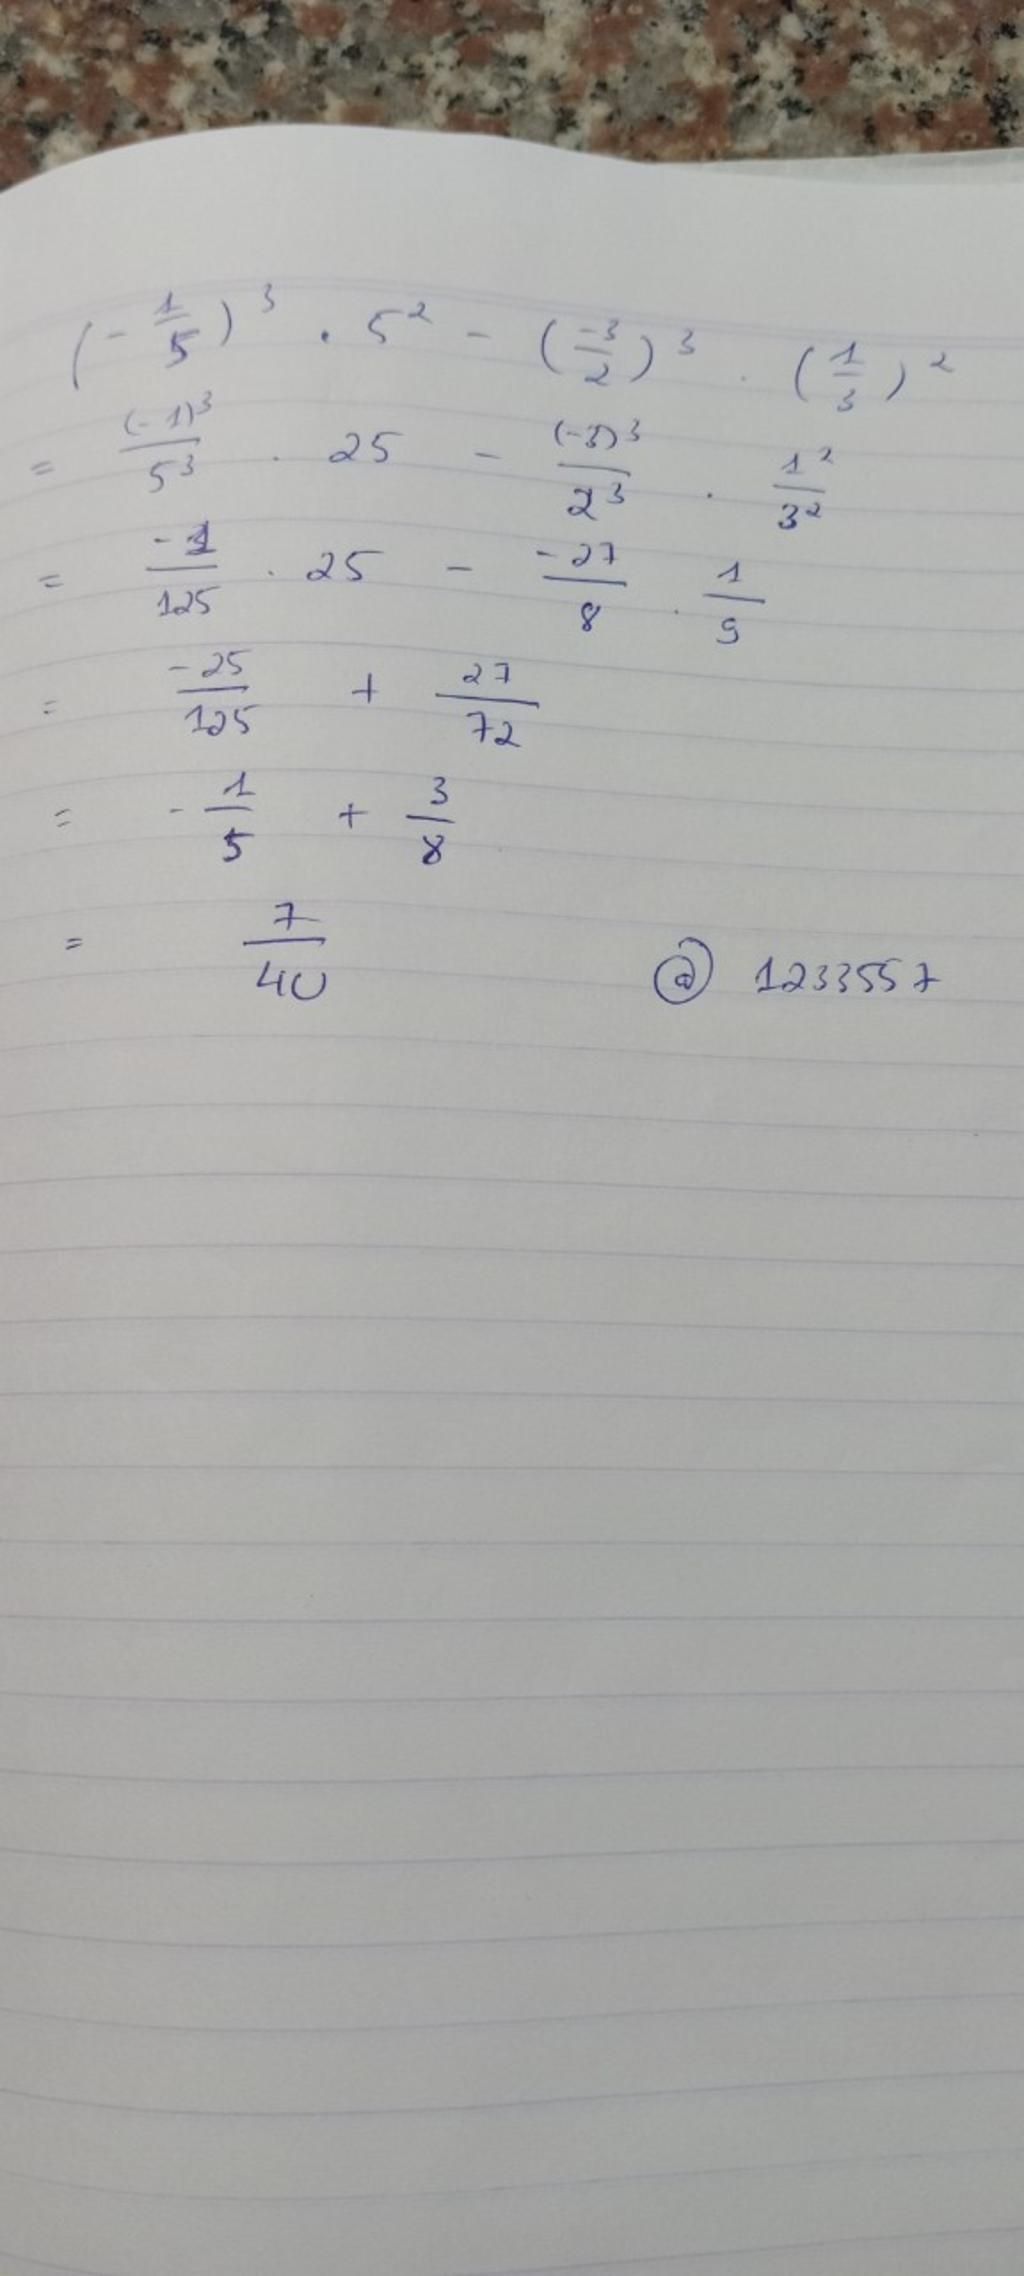 (-1/5)³ . 5² - (-3/2)³ . (1/3)²
= (-1)³/5³ . 25 - (-3)³/2³ . 1²/3²
= -1/125 . 25 - -27/8 . 1/9
= -25/125 + 27/72
= -1/5 + 3/8
= 7/40 @ 1233557